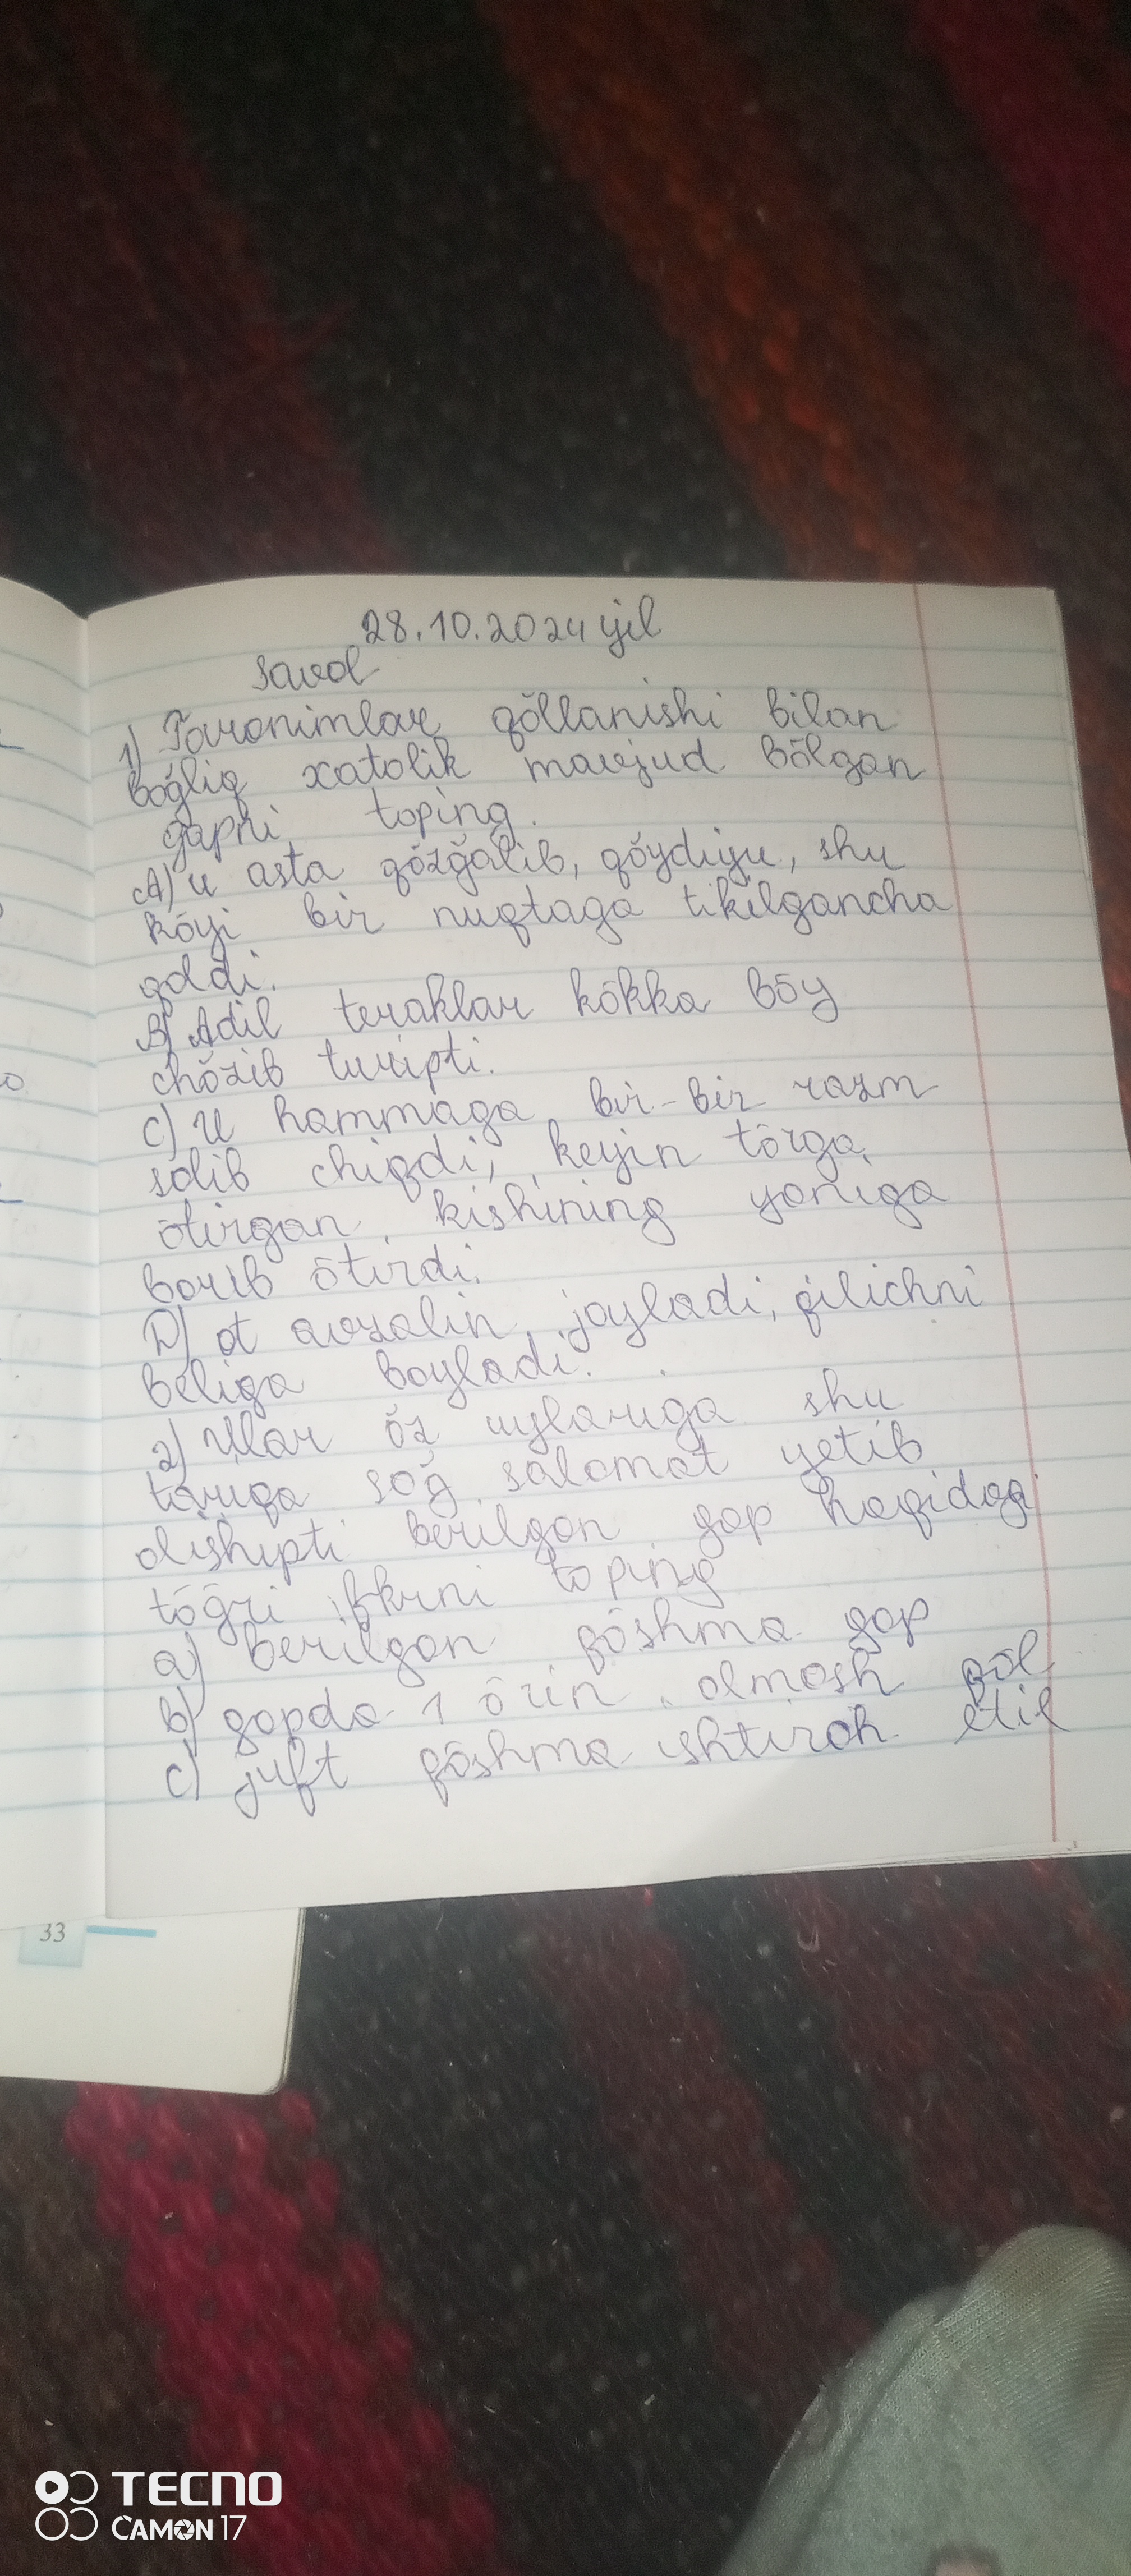 28.10.2024 yil
savol
1) Paronimlar qõllanishi bilan
bog̃liq xatolik mavjud bõlgan
gapni toping.
A) u asta qõzg̃alib, qõydiyu, shu
kõyi bir nuqtaga tikilgancha
qoldi.
B) Adil teraklar kõkka bõy
chõzib turipti.
C) U hammaga bir-bir razm
solib chiqdi, keyin tõrga
õtirgan kishining yoniga
borib õtirdi.
D) ot avzalin joyladi, qilichni
beliga boyladi.
2) Ular õz uylariga shu
tariqa sog̃ salomat yetib
olishipti berilgan gap haqidagi
tõg̃ri fikrni toping
a) berilgan qõshma gap
b) gapda 1 õrin olmosh qõl
c) juft qõshma ishtiroh etil
33
TECNO
CAMON 17